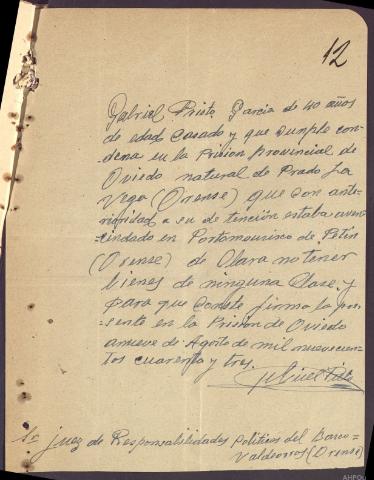 12
Gabriel Prieto Garcia de 40 años
de edad Casado y que cumple con-
-dena en la Prision provincial de
Oviedo natural de Prado La
Vega (Orense) que con ante-
rioridad a su detención estaba avein-
-cindado en Portomourisco de Petin
(Orense) declara no tener
bienes de ninguna Clase y
para que Conste firmo la pre-
-sente en la Prision de Oviedo
anueve de Agosto de mil nuevecien-
tos cuarenta y tres
Sr juez de Responsabilidades Politicas del Barco=
Valdeorras (Orense)
AHPOu